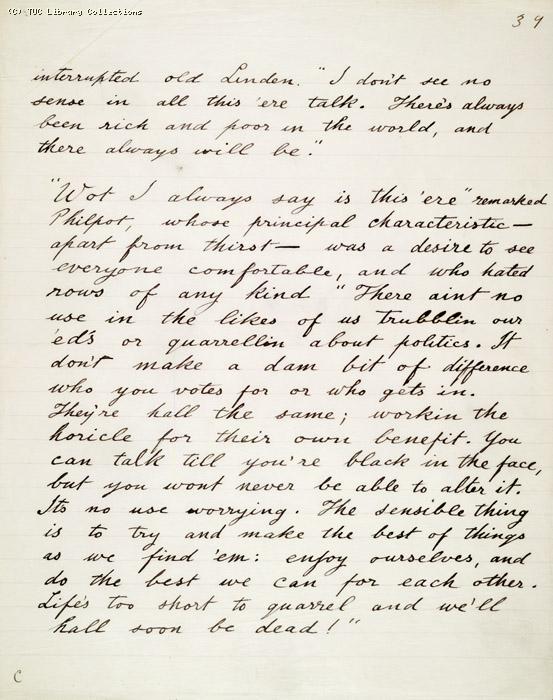 (C) TUC Library Collections
39
interrupted old Linden. "I don't see no
sense in all this 'ere talk. There's always
been rich and poor in the world, and
there always will be."
"Wot I always say is this 'ere" remarked
Philpot, whose principal characteristic—
apart from thirst— was a desire to see
everyone comfortable, and who hated
rows of any kind "There aint no
use in the likes of us trubblin our
'ed's or quarrellin about politics. It
don't make a dam bit of difference
who you votes for or who gets in.
They're hall the same; workin the
horicle for their own benefit. You
can talk till you're black in the face,
but you wont never be able to alter it.
Its no use worrying. The sensible thing
is to try and make the best of things
as we find 'em: enjoy ourselves, and
do the best we can for each other.
Life's too short to quarrel and we'll
hall soon be dead!"
C